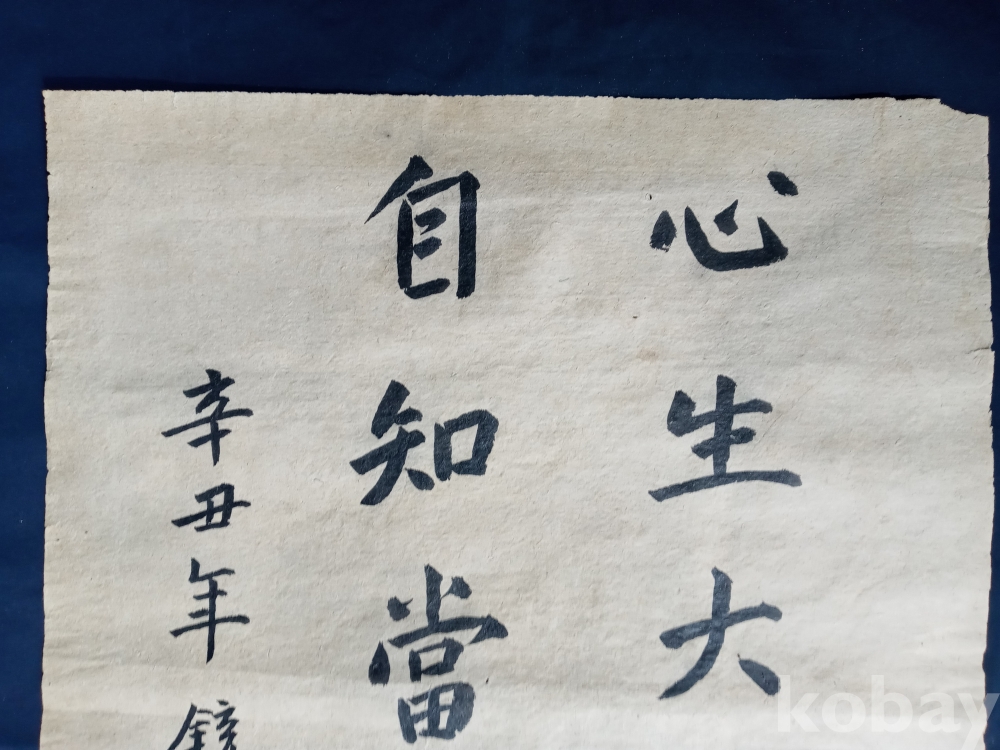 心生大
自知當
辛丑年
kobay